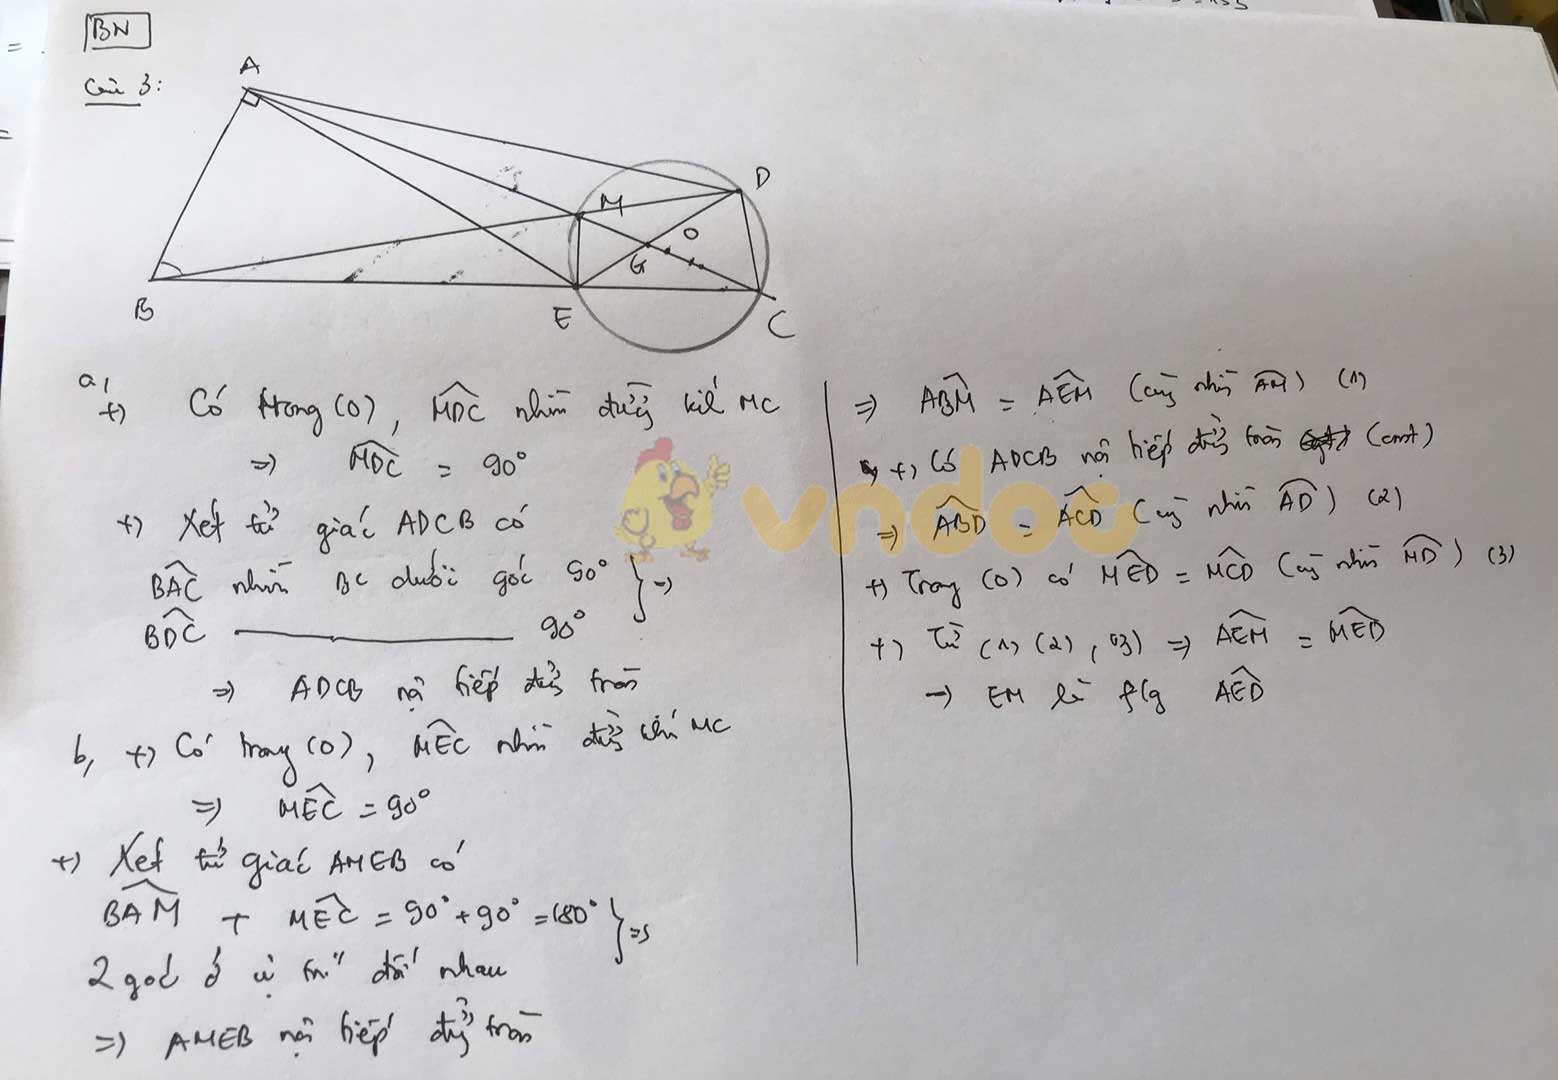 BN
Câu 3:
A
M
D
O
G
B
E
C
a,
+) Có trong (O), MDC nhìn đường kính MC
=> MDC = 90°
+) Xét tứ giác ADCB có
BAC nhìn BC dưới góc 90° } =>
BDC ———— 90°
=> ADCB nội tiếp đường tròn
b, +) Có trong (O), MEC nhìn đường kính MC
=> MEC = 90°
+) Xét tứ giác AMEB có
BAM + MEC = 90° + 90° = 180° } =>
2 góc ở vị trí đối nhau
=> AMEB nội tiếp đường tròn
=> ABM = AEM (cùng nhìn AM) (1)
+) Có ADCB nội tiếp đường tròn (cmt)
=> ABD = ACD (cùng nhìn AD) (2)
+) Trong (O) có MED = MCD (cùng nhìn MD) (3)
+) Từ (1) (2), (3) => AEM = MED
-> EM là f/g AED
vndoc